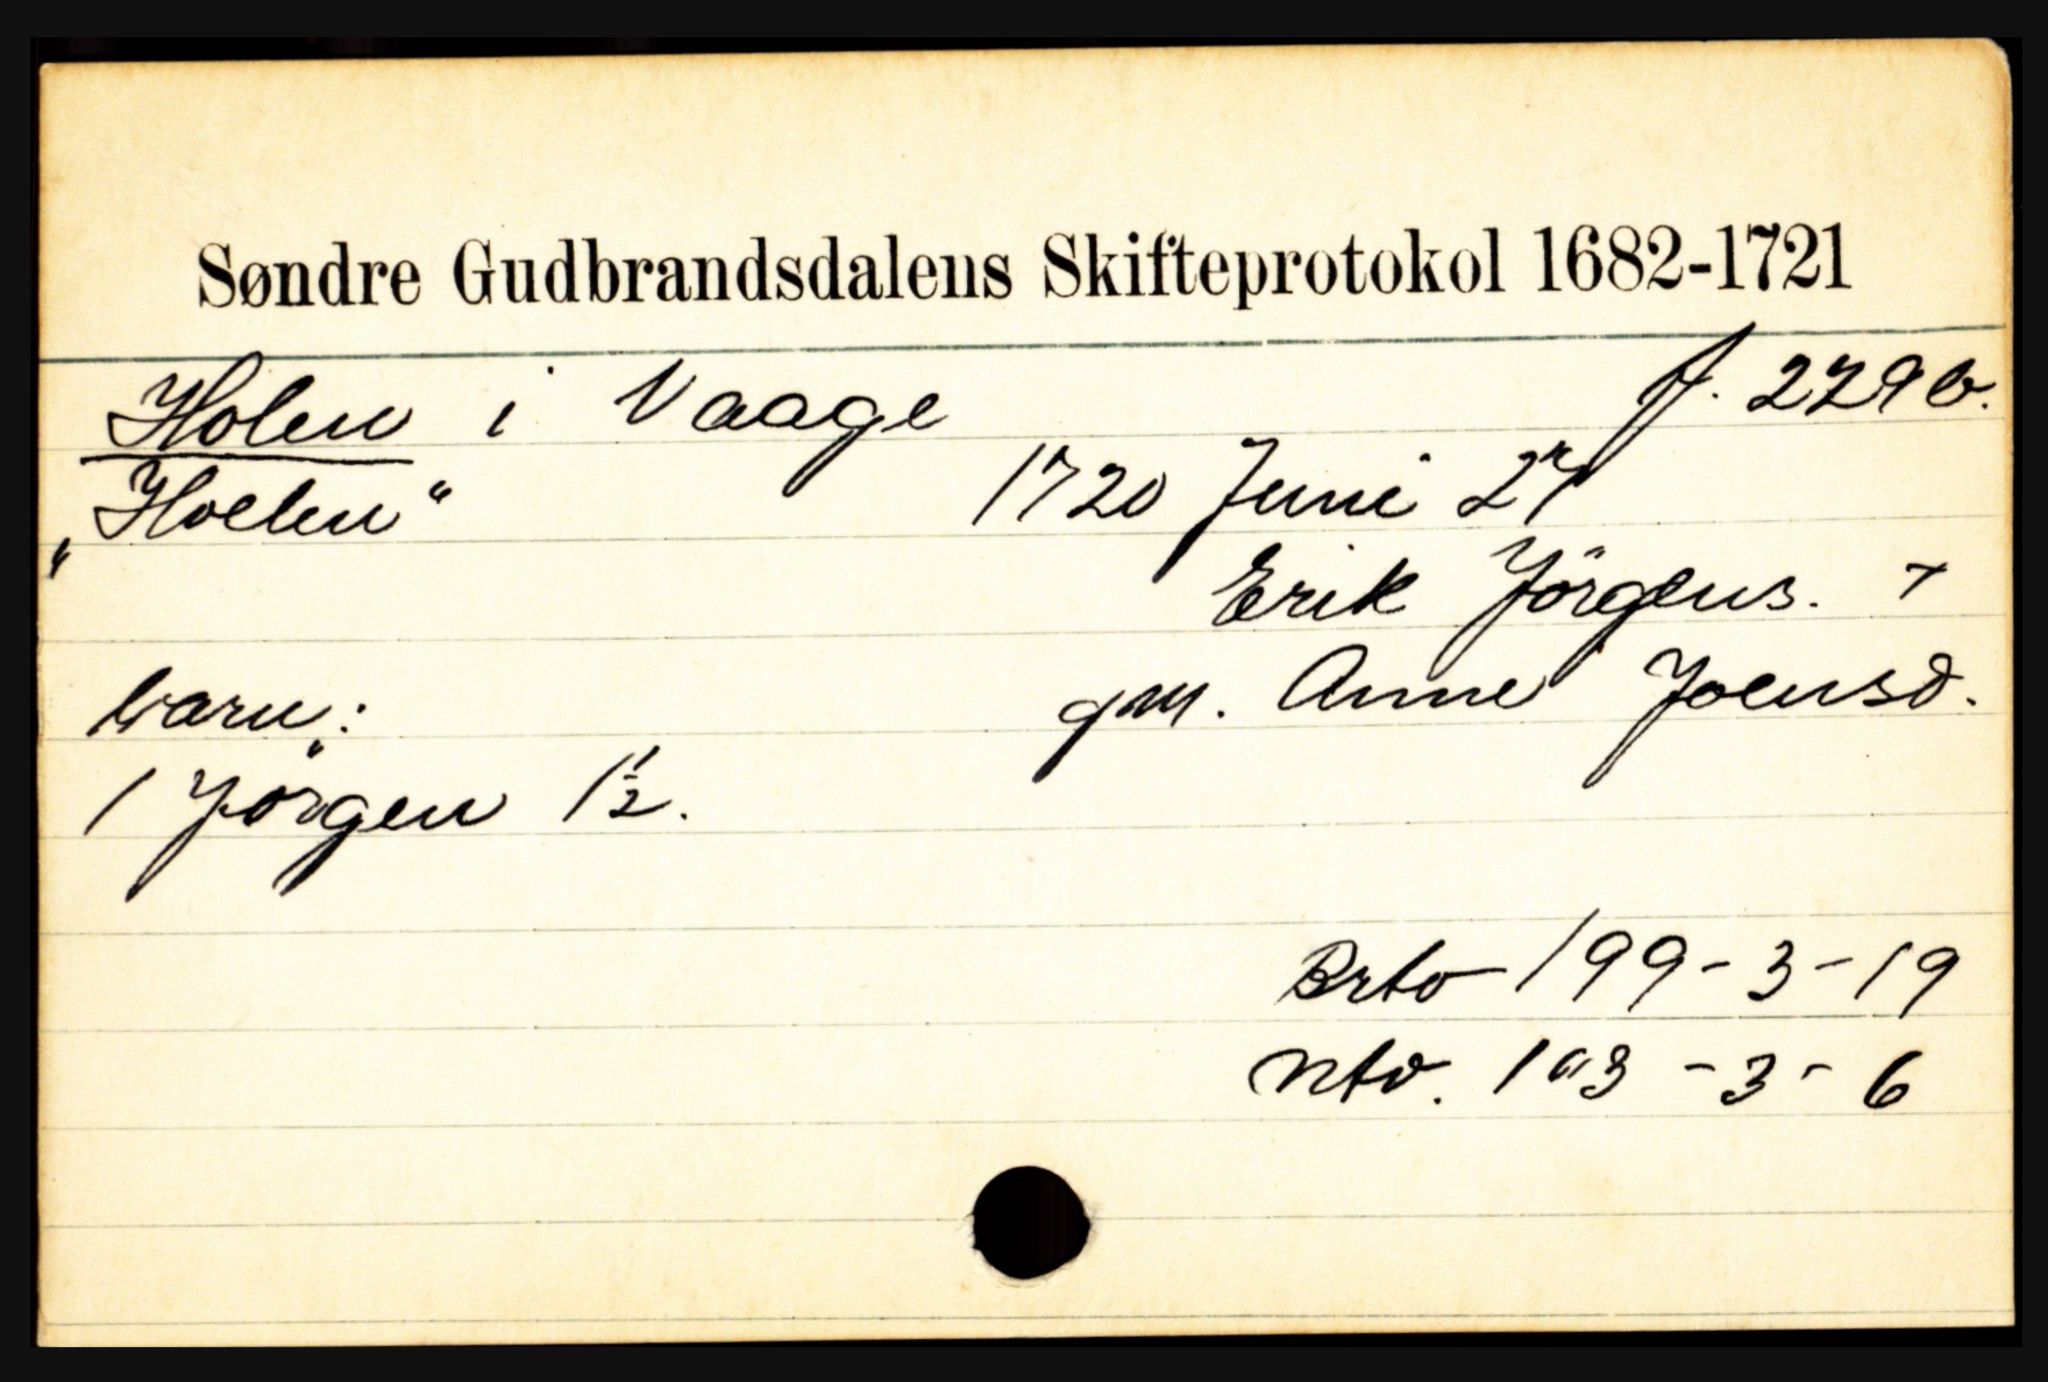 Søndre Gudbrandsdalens Skifteprotokol 1682-1721
Holen i Vaage f. 229b.
„Hoelen“ 1720 Juni 27
Erik Jörgens. +
barn: gm. Anne Joensd.
1 Jörgen 1½.
Brto 199-3-19
Nto. 103-3-6